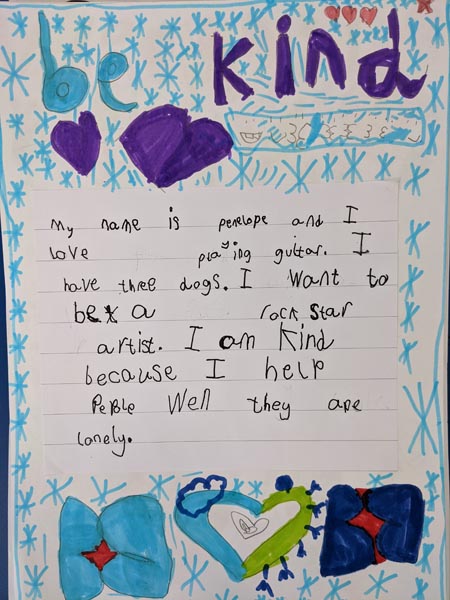 be kind
My name is penelope and I
love playing guitar. I
have three dogs. I want to
be a rock star
artist. I am Kind
because I help
PePole Well they are
lonely.